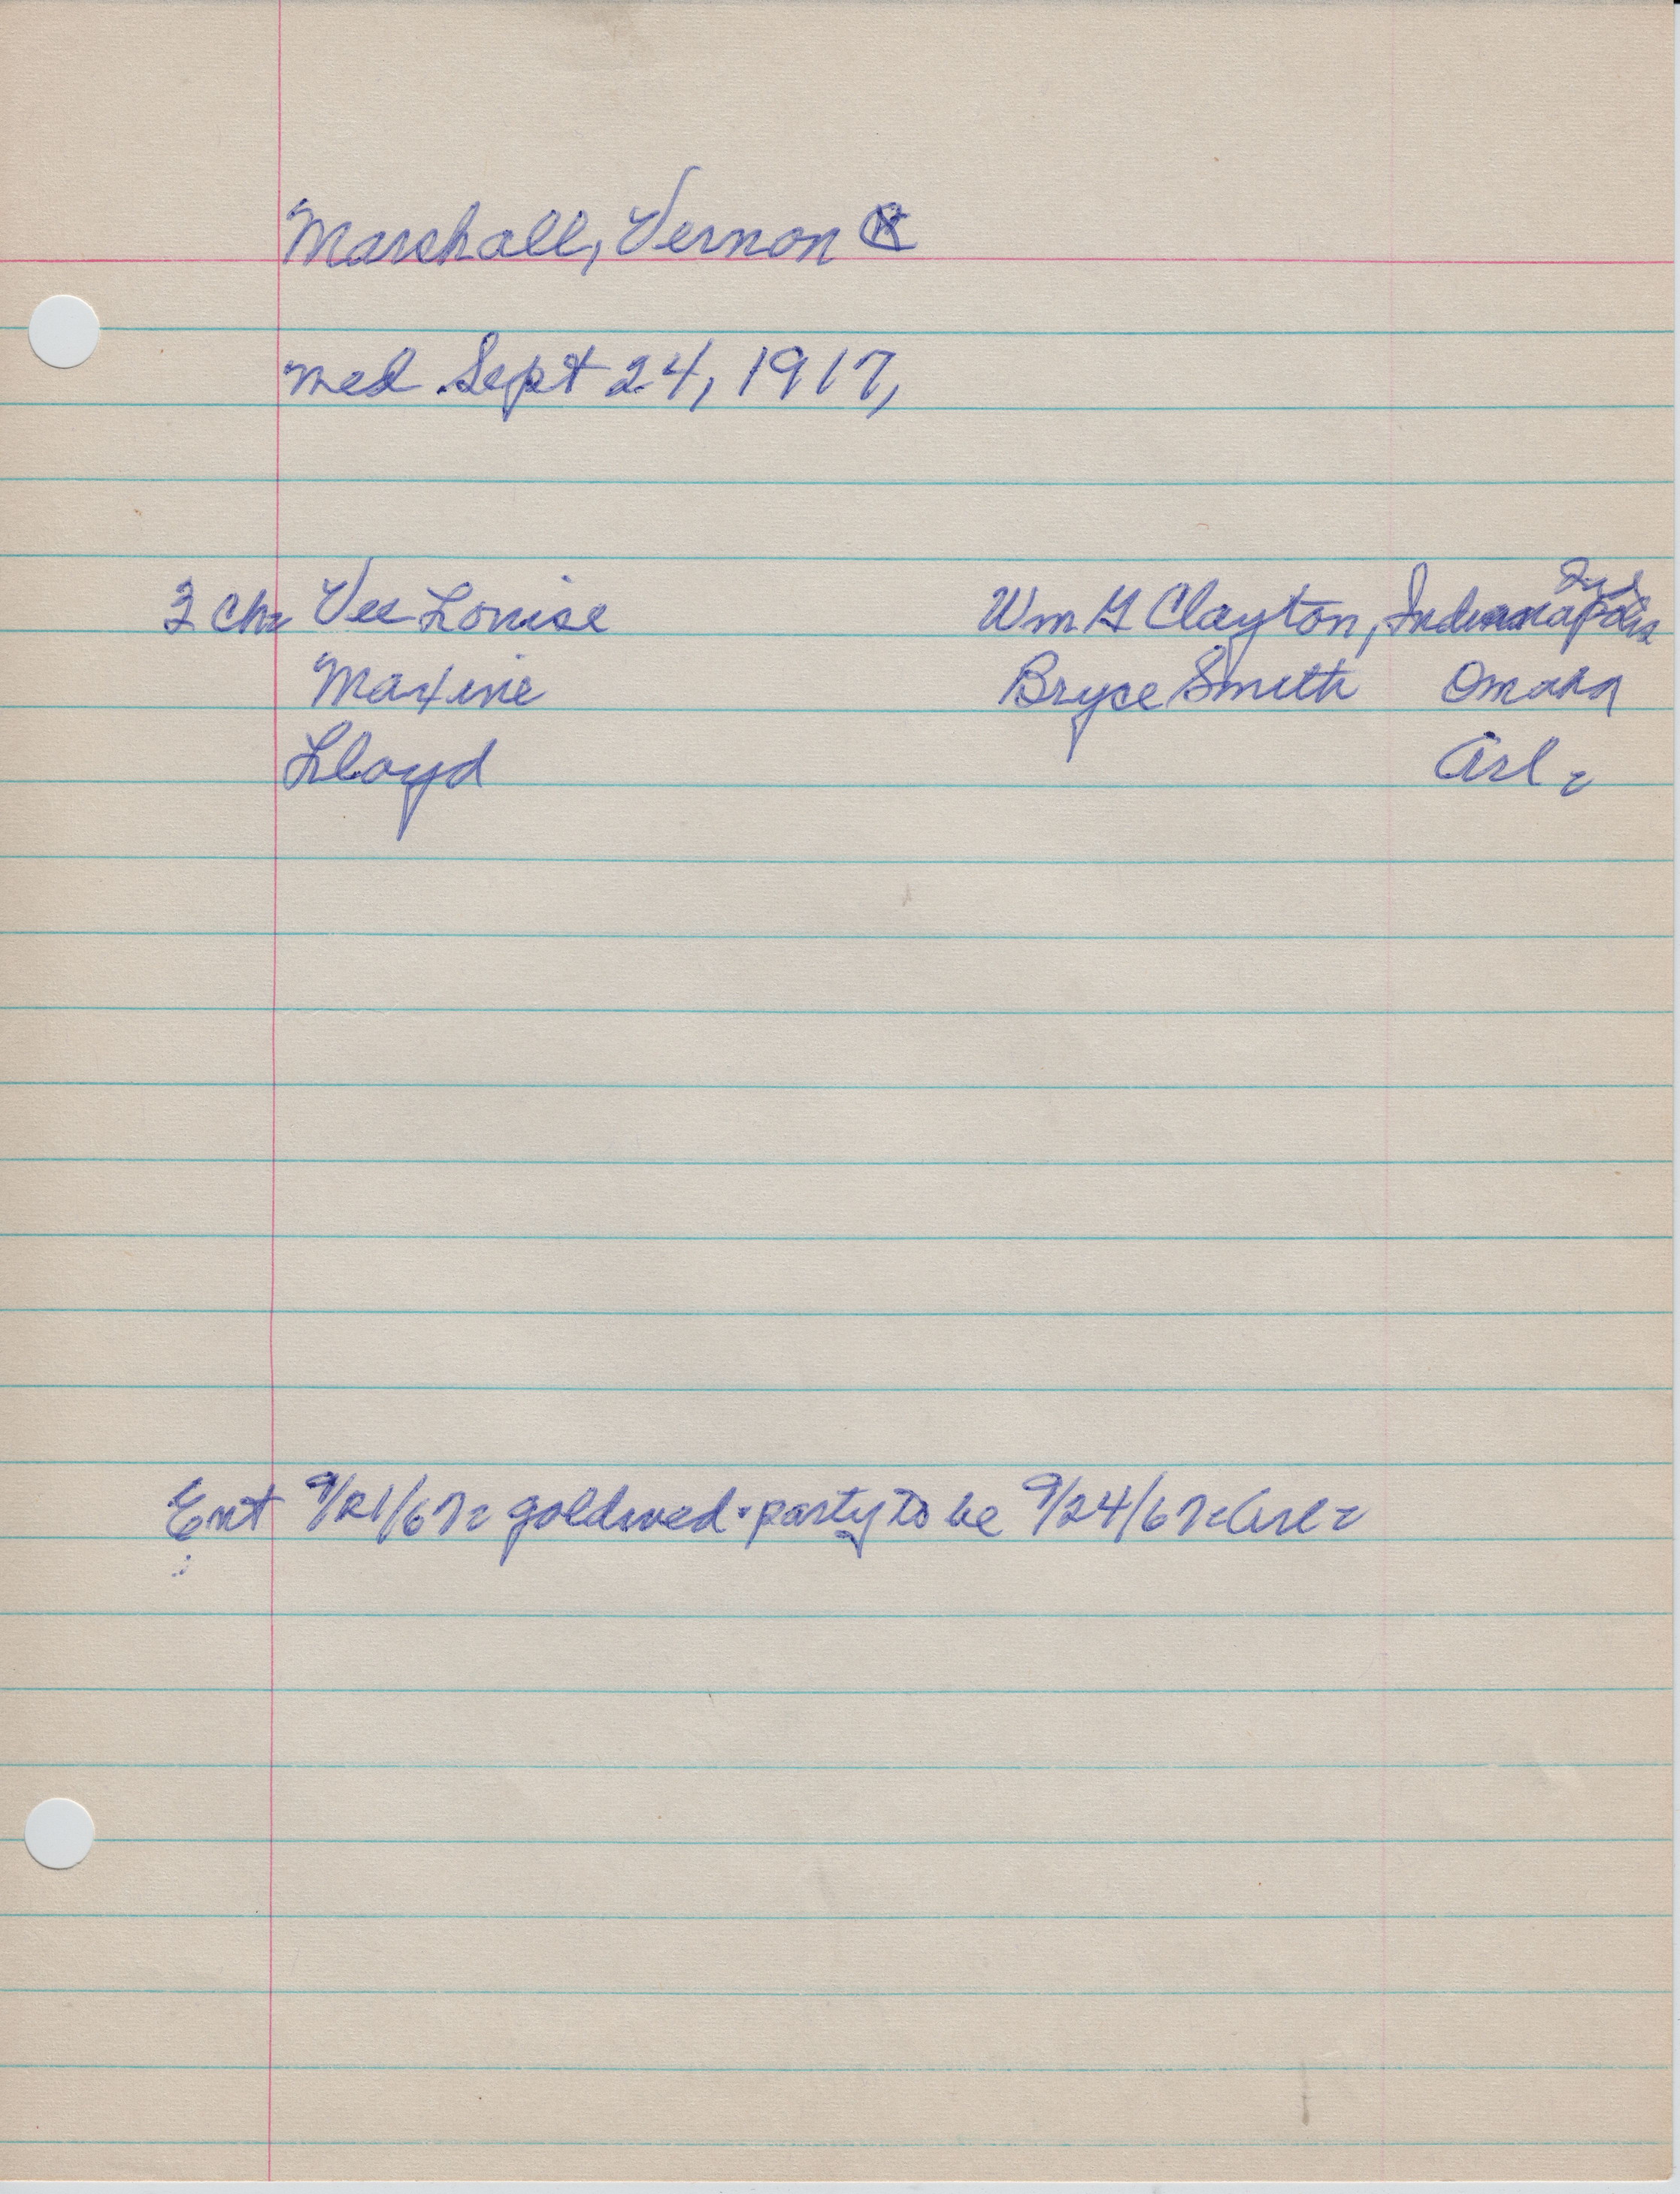 Marshall, Vernon
med Sept 24, 1917,
3 Ch= Vee Louise Wm G Clayton, Indianapolis Ind
Maxine Bryce Smith Omaha
Lloyd Arl=
Ent 9/21/67= goldwed-party to be 9/24/67=Arl=